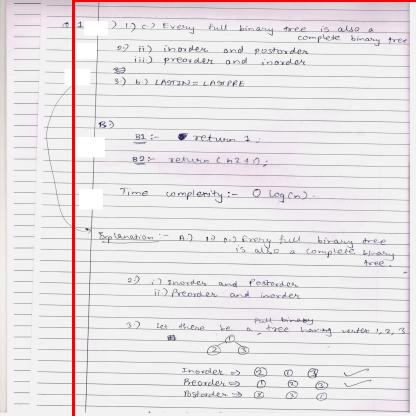 Q 1 ) 1) c) Every full binary tree is also a
complete binary tree
2) ii) inorder and postorder
iii) preorder and inorder
3) b) LASTIN = LASTPRE
B)
B1:- return 1;
B2:- return (n2+1);
Time complexity:- O log(n).
Explanation:- A.) 1) c.) Every full binary tree
is also a complete binary
tree.
2) i) Inorder and Postorder
ii.) Preorder and inorder
3.) Let there be a full binary tree having vertex 1, 2, 3
1
2 3
Inorder => 2 1 3
Preorder => 1 2 3
Postorder => 2 3 1